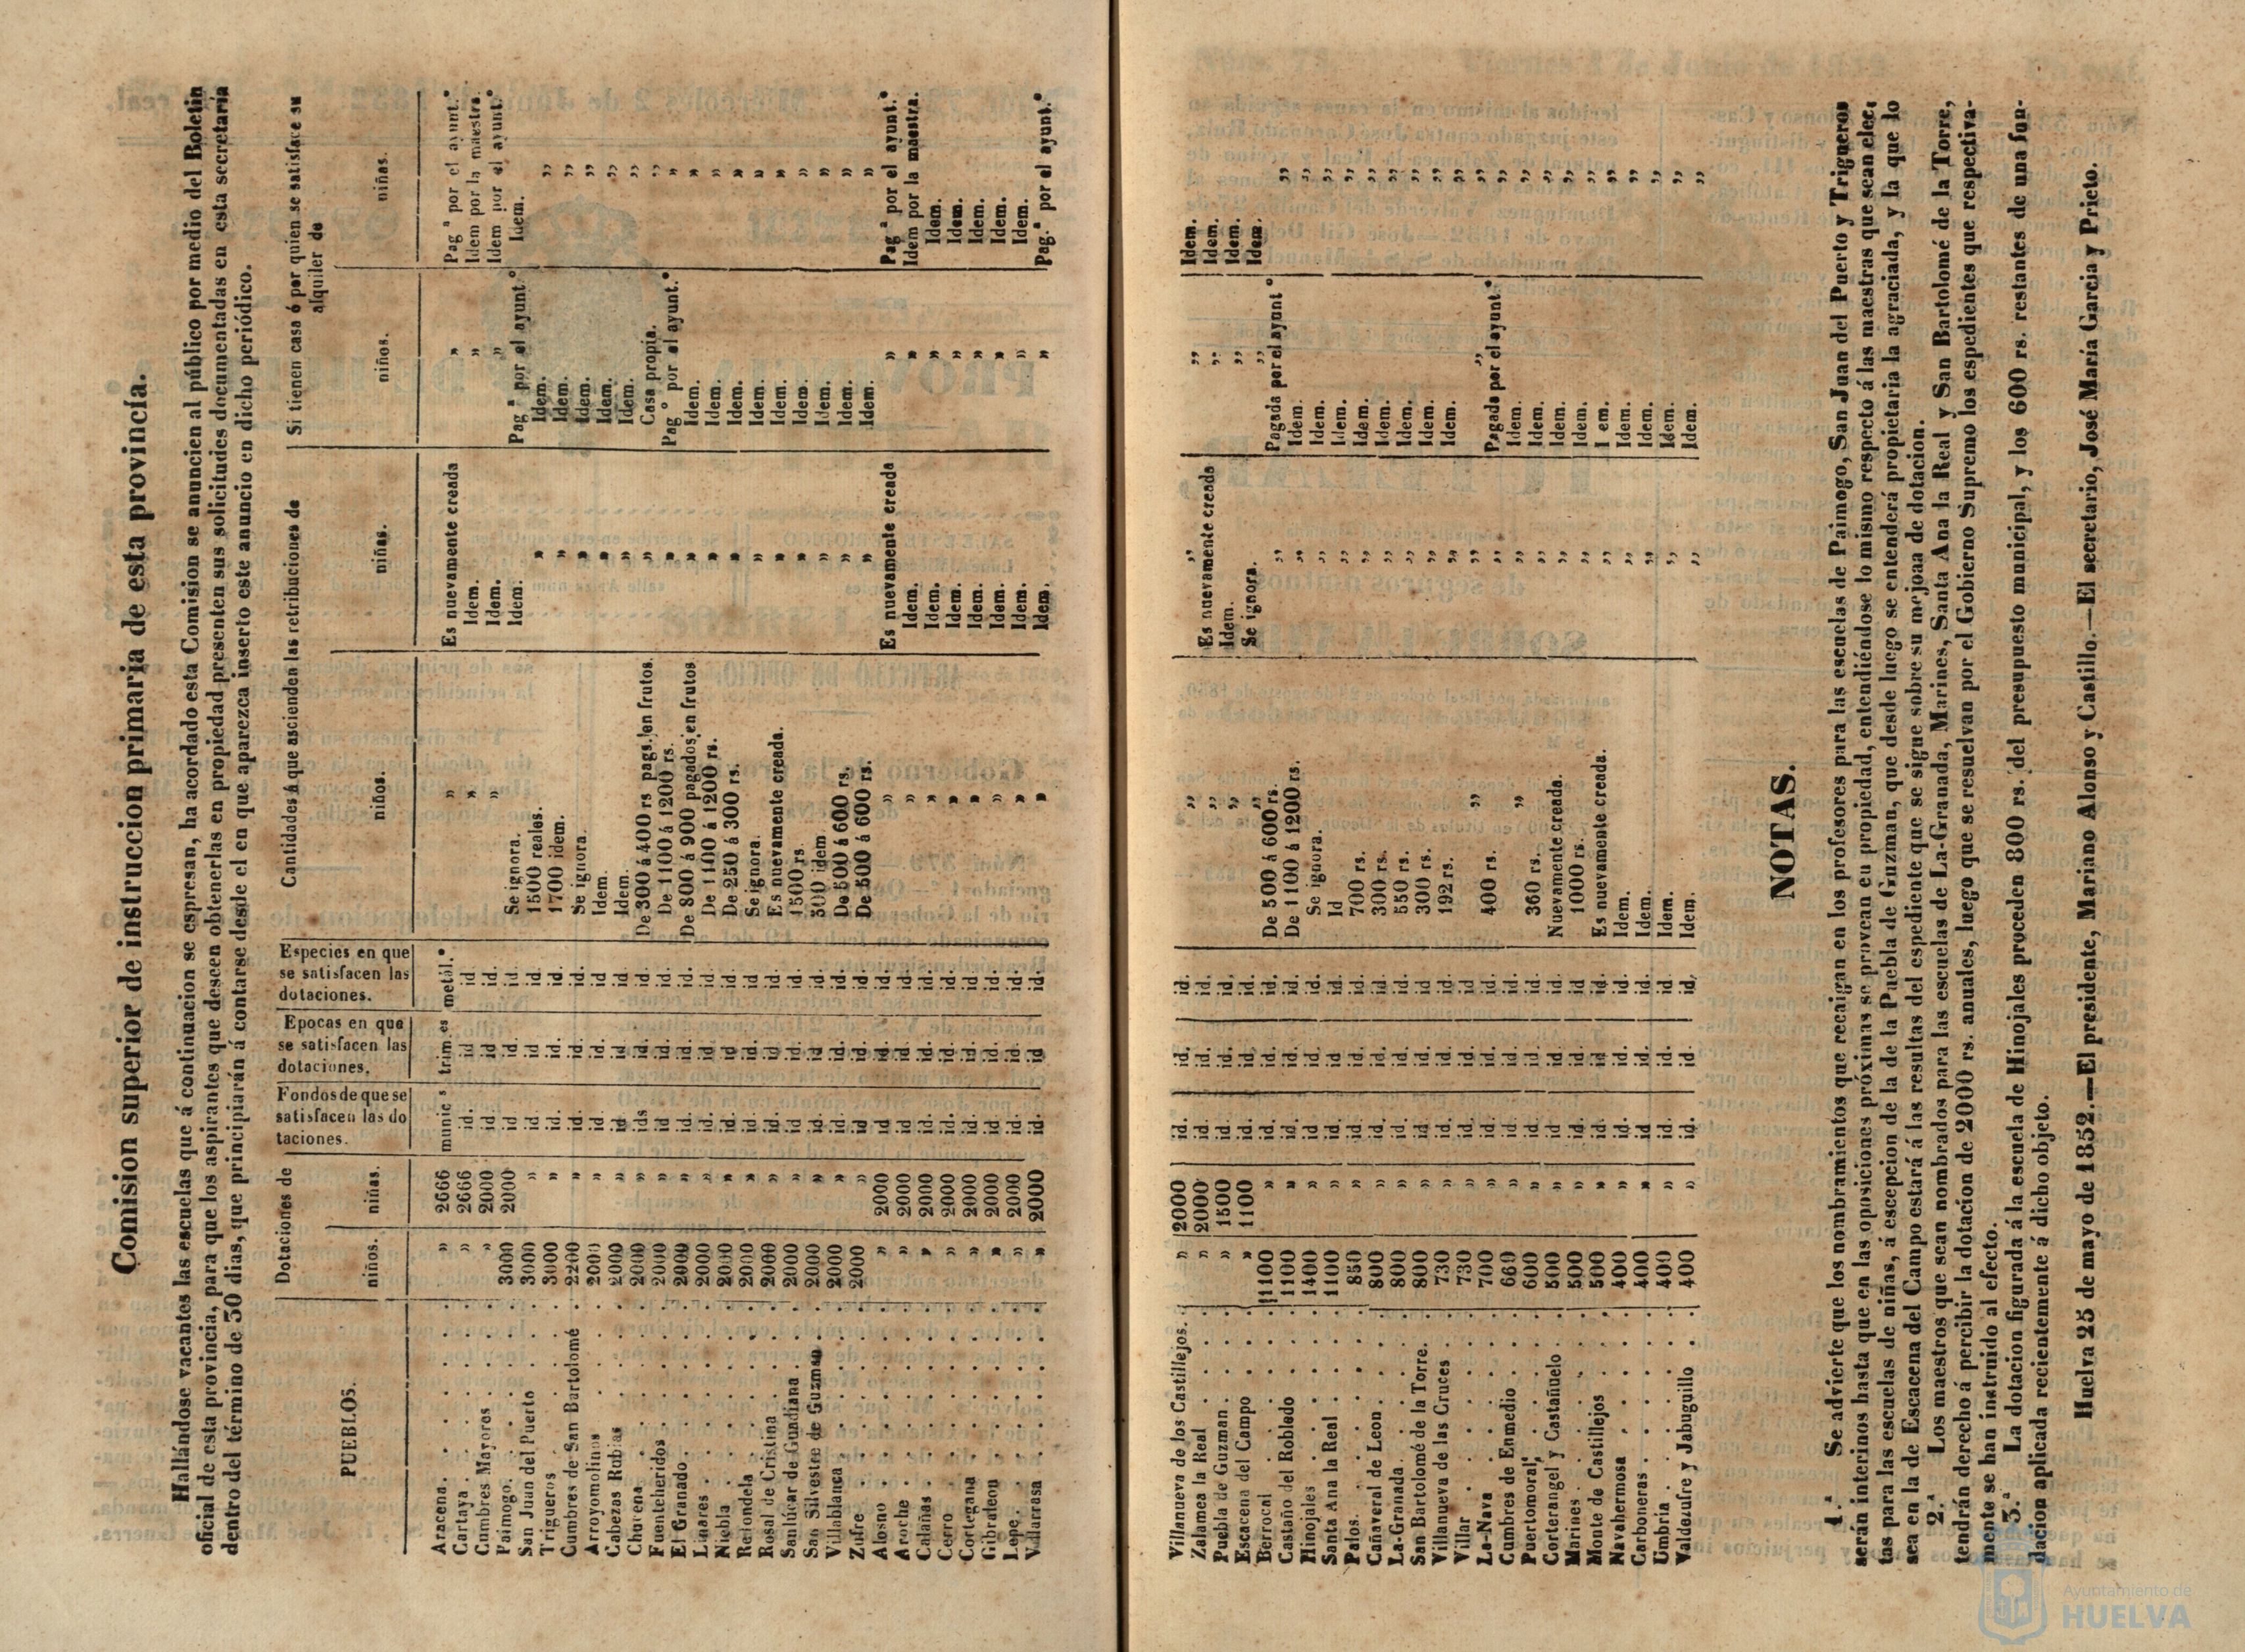 Comision superior de instruccion primaria de esta provincia.
Hallándose vacantes las escuelas que á continuacion se espresan, ha acordado esta Comision se anuncien al público por medio del Boletin
oficial de esta provincia, para que los aspirantes que deseen obtenerlas en propiedad presenten sus solicitudes documentadas en esta secretaria
dentro del término de 30 dias, que principiarán á contarse desde el en que aparezca inserto este anuncio en dicho periódico.
PUEBLOS.
Dotaciones de
niños. niñas.
Fondos de que se
satisfacen las do
taciones.
Epocas en que
se satisfacen las
dotaciones.
Especies en que
se satisfacen las
dotaciones.
Cantidades á que ascienden las retribuciones de
niños. niñas.
Si tienen casa ó por quien se satisface su
alquiler de
niños. niñas.
Aracena. . . . . » 2666 munic s trim.es metál.º » Es nuevamente creada » Pag ª por el ayunt.º
Cartaya . . . . . » 2666 id. id id. » Idem. » Idem por la maestra.
Cumbres Mayores . . . » 2000 id. id id. » Idem. » Idem por el ayunt.º
Paimogo. . . . . 3000 2000 id id. id. Se ignora. Idem. Pag ª por el ayunt º Idem.
San Juan del Puerto . . 3000 » id. id id. 1500 reales. » Idem. ,,
Trigueros . . . . 3000 » id. id. id. 1700 idem. » Idem. ,,
Cumbres de San Bartolomé . 2200 » id. id. id. Se ignora. » Idem. ,,
Arroyomolinos . . . 2000 » id. id. id. Idem. » Idem. ,,
Cabezas Rubias . . . 2000 » id id. id. Idem. » Idem. ,,
Chucena . . . . . 2000 » ids id. id. De 300 á 400 rs pags. en frutos. » Casa propia. ,,
Fuenteheridos . . . . 2000 » id. id. id. De 1100 á 1200 rs. » Pag º por el ayunt.º »
El Granado. . . . . 2000 » id. id. id. De 800 á 900 pagados en frutos » Idem. »
Linares . . . . . 2000 » id. id. id. De 1100 á 1200 rs. » Idem. »
Niebla . . . . . 2000 » id. id. id. De 250 á 300 rs. » Idem. »
Redondela . . . . 2000 » id. id. id. Se ignora. » Idem. »
Rosal de Cristina . . . 2000 » id. id. id. Es nuevamente creada. » Idem. »
Sanlúcar de Guadiana . . 2000 » id. id. id. 1500 rs. » Idem. »
San Silvestre de Guzman . 2000 » id. id. id. 500 idem » Idem. »
Villablanca . . . . 2000 » id. id. id. De 500 á 600 rs. » Idem. »
Zufre . . . . . 2000 » id. id. id. De 500 á 600 rs. » Idem. »
Alosno . . . . . » 2000 id. id. id. » Es nuevamente creada » Pag ª por el ayunt.º
Aroche . . . . . » 2000 id. id. id. » Idem. » Idem por la maestra.
Calañas . . . . . » 2000 id. id. id. » Idem. » Idem.
Cerro . . . . . » 2000 id. id. id. » Idem. » Idem.
Cortegana . . . . » 2000 id. id. id. » Idem. » Idem.
Gibraleon . . . . » 2000 id. id. id. » Idem. » Idem.
Lepe. . . . . . » 2000 id. id. id. » Idem. » Idem.
Villarrasa . . . . » 2000 id. id. id. » Idem. » Pag.ª por el ayunt.º
Villanueva de los Castillejos. . » 2000 id. id. id. ,, ,, ,, Idem.
Zalamea la Real . . . » 2000 id. id. id. ,, Es nuevamente creada ,, Idem.
Puebla de Guzman . . . » 1500 id. id. id. ,, Idem. ,, Idem.
Escacena del Campo . . » 1100 id. id. id. ,, Se ignora. ,, Idem.
Berrocal . . . . . 1100 » id. id. id. De 500 á 600 rs. ,, Pagada por el ayunt º ,,
Castaño del Robledo . . 1100 » id. id. id. De 1100 á 1200 rs. ,, Idem. ,,
Hinojales . . . . 1400 » id. id. id. Se ignora. ,, Idem. ,,
Santa Ana la Real . . . 1100 » id. id. id. Id ,, Idem. ,,
Palos. . . . . . 850 » id. id. id. 700 rs. ,, Idem. ,,
Cañaveral de Leon . . . 800 » id. id. id. 300 rs. ,, Idem. ,,
La-Granada. . . . . 800 » id. id. id. 550 rs. ,, Idem. ,,
San Bartolomé de la Torre. . 800 » id. id. id. 300 rs. ,, Idem. ,,
Villanueva de las Cruces . . 730 » id. id. id. 192 rs. ,, Idem. ,,
Villar . . . . . 730 » id. id. id. ,, ,, ,, ,,
La-Nava . . . . . 700 » id. id. id. 400 rs. ,, Pagada por el ayunt.º ,,
Cumbres de Enmedio . . 660 » id. id. id. ,, ,, Idem. ,,
Puertomoral . . . . 600 » id. id. id. 360 rs. ,, Idem. ,,
Corterangel y Castañuelo . . 500 » id id. id. Nuevamente creada. ,, Idem. ,,
Marines . . . . . 500 » id. id. id. 1000 rs. ,, Idem. ,,
Monte de Castillejos . . 500 » id. id. id. Es nuevamente creada. ,, I em. ,,
Navahermosa . . . . 400 » id. id. id. Idem. ,, Idem. ,,
Carboneras . . . . 400 » id. id. id. Idem. ,, Idem. ,,
Umbria . . . . . 400 » id. id. id. Idem. ,, Idem. ,,
Valdezufre y Jabuguillo . . 400 » id. id. id. Idem. ,, Idem. ,,
NOTAS.
1.ª Se advierte que los nombramientos que recaigan en los profesores para las escuelas de Paimogo, San Juan del Puerto y Trigueros
serán interinos hasta que en las oposiciones próximas se provean en propiedad, entendiéndose lo mismo respecto á las maestras que sean elec,
tas para las escuelas de niñas, á escepcion de la de la Puebla de Guzman, que desde luego se entenderá propietaria la agraciada, y la que lo
sea en la de Escacena del Campo estará á las resultas del espediente que se sigue sobre su mejoaa de dotacion.
2.ª Los maestros que sean nombrados para las escuelas de La-Granada, Marines, Santa Ana la Real y San Bartolomé de la Torre,
tendrán derecho á percibir la dotacion de 2000 rs. anuales, luego que se resuelvan por el Gobierno Supremo los espedientes que respectiva-
mente se han instruido al efecto.
3.ª La dotacion figurada á la escuela de Hinojales proceden 800 rs. del presupuesto municipal, y los 600 rs. restantes de una fun-
dacion aplicada recientemente á dicho objeto.
Huelva 25 de mayo de 1852.—El presidente, Mariano Alonso y Castillo.—El secretario, José María Garcia y Prieto.
Ayuntamiento de
HUELVA